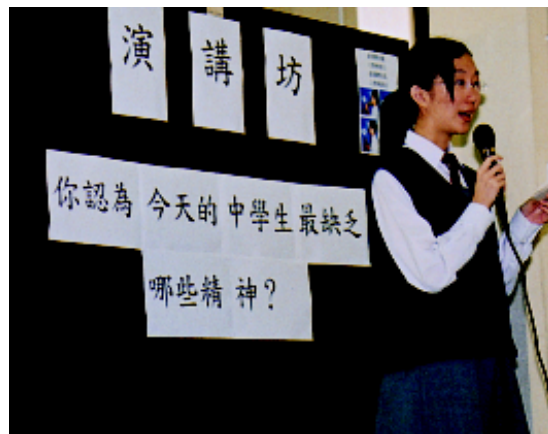 演講坊
你認為今天的中學生最缺乏
哪些精神?